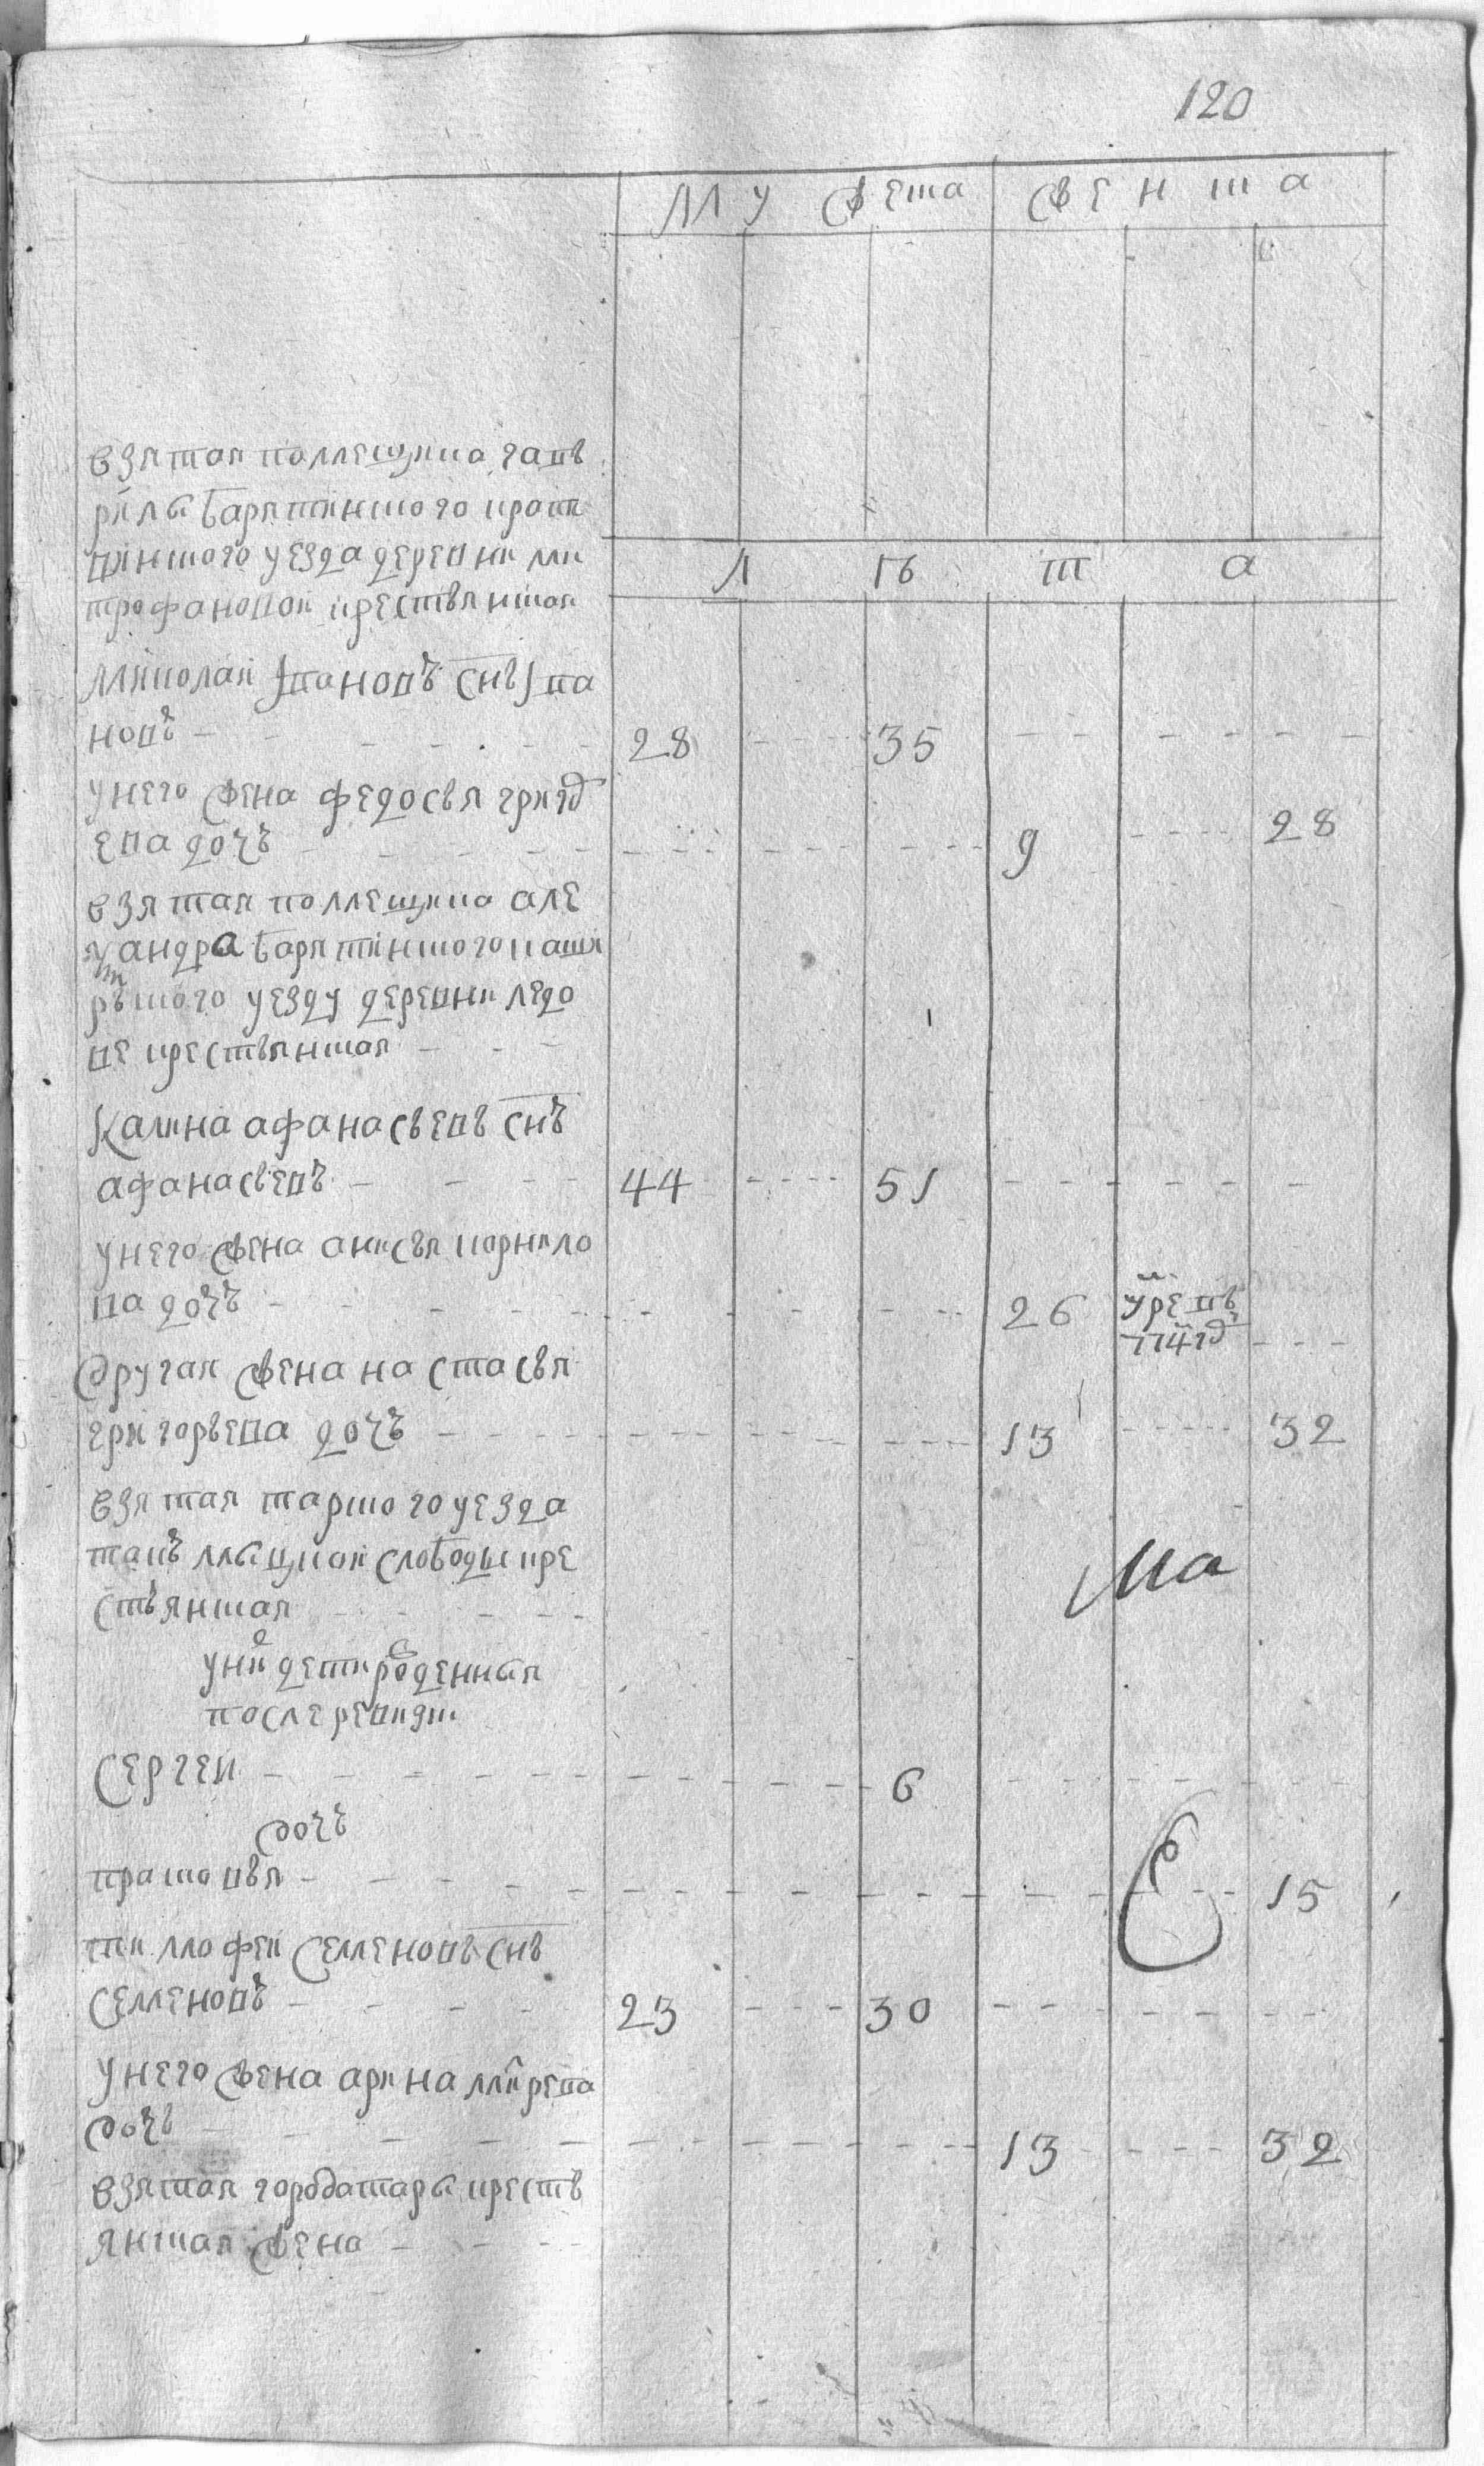 120
Мужеска Женска
Лѣта
взятая помещика гав
рилы барятинского крапи
винского уезда деревни ми
трофановой крестьянская
Миколаи Iвановъ снъ Iва
новъ 28 35
у него жена федосья григо
ева дочь 9 28
взятая помещика алек
сандра барятинского кашы
рского уезду деревни ледо
ве крестьянская
Калина афанасьевъ снъ
афанасьевъ 44 51
у него жена анисья корнило
ва дочь 26 умре въ
гд
Другая жена настасья
григорьева дочь 13 32
взятая тарского уезда
такъ мыцкои слободы кре
стьянская
ка
у ни дети рожденныя
после ревизии
Сергеи 6
Дочь
прасковья 15
Е
тимофеи Семеновъ снъ
Семеновъ 23 30
у него жена арина
дочь 13 32
взятая города тары кресть
янская жена